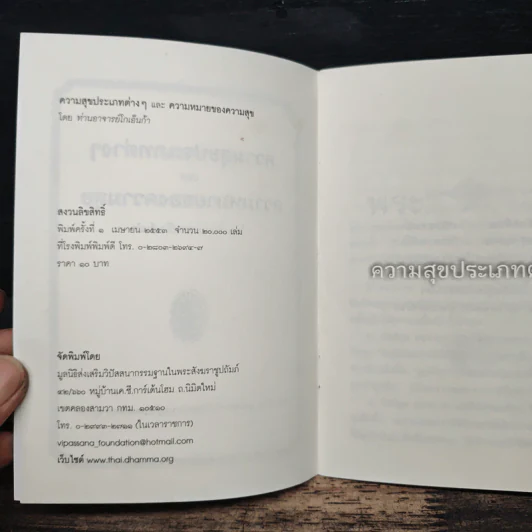 ความสุขประเภทต่าง ๆ และ ความหมายของความสุข
โดย ท่านอาจารย์โกเอ็นก้า
สงวนลิขสิทธิ์
พิมพ์ครั้งที่ ๑ เมษายน ๒๕๕๓ จำนวน ๒๐,๐๐๐ เล่ม
ที่โรงพิมพ์พิมพ์ดี โทร.
ราคา ๑๐ บาท
จัดพิมพ์โดย
มูลนิธิส่งเสริมวิปัสสนากรรมฐานในพระสังฆราชูปถัมภ์
๔๒/๖๖๐ หมู่บ้านเค.ซี.การ์เด้นโฮม ถ.นิมิตใหม่
เขตคลองสามวา กทม. ๑๐๕๑๐
โทร. ๐-๒๙๙๓-๒๗๑๑ (ในเวลาราชการ)
vipassana_foundation@hotmail.com
เว็บไซต์ www.thai.dhamma.org
ความสุขประเภทต